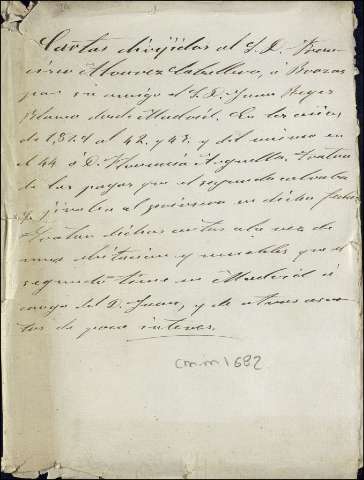 Cartas dirijidas al S. D. Fran-
cisco Alvarez Caballero, á Brozas
por su amigo el S. D. Juan Reyes
Blanco desde Madrid. En los años
de 1,819 al 42 y 43, y del mismo en
el 44 á D. Florencia Arguello. Tratan
de los pagos que el segundo cobraba
y jiraba al primero en dicha fecha.
Tratan dichas cartas a la vez de
unas obitacion y muebles que el
segundo tiene en Madrid á
cargo del D. Juan, y de otros asun-
tos de poco interes.
cm. m 1682